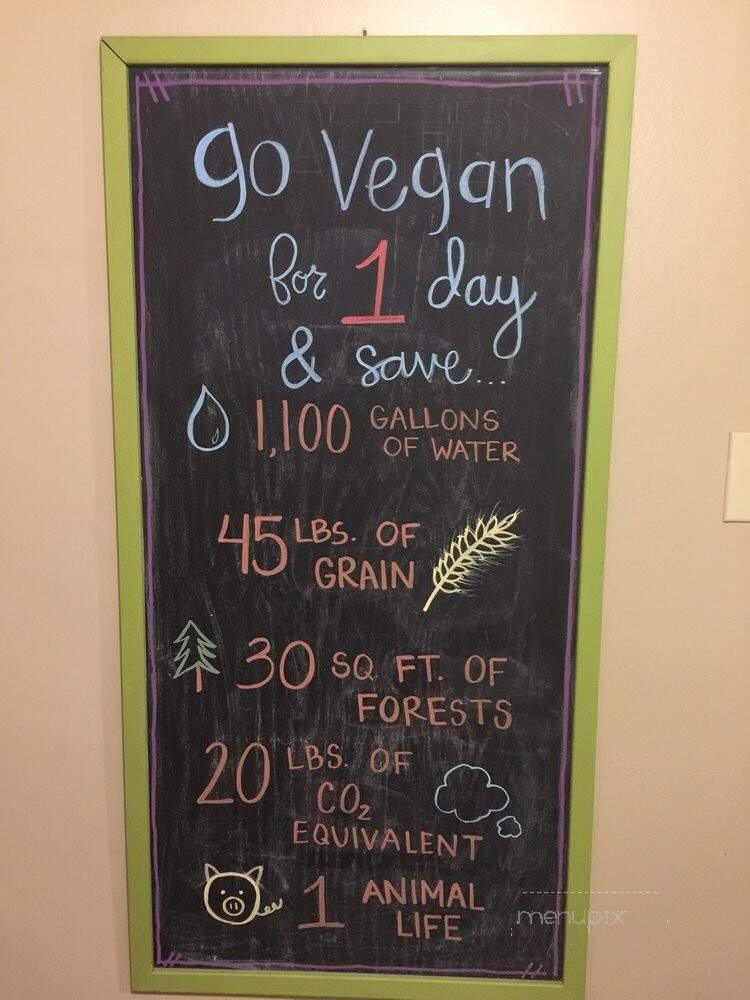 go Vegan
for 1 day
& save...
1,100 GALLONS
OF WATER
45 LBS. OF
GRAIN
30 SQ. FT. OF
FORESTS
20 LBS. OF
CO₂
EQUIVALENT
1 ANIMAL
LIFE
menupix